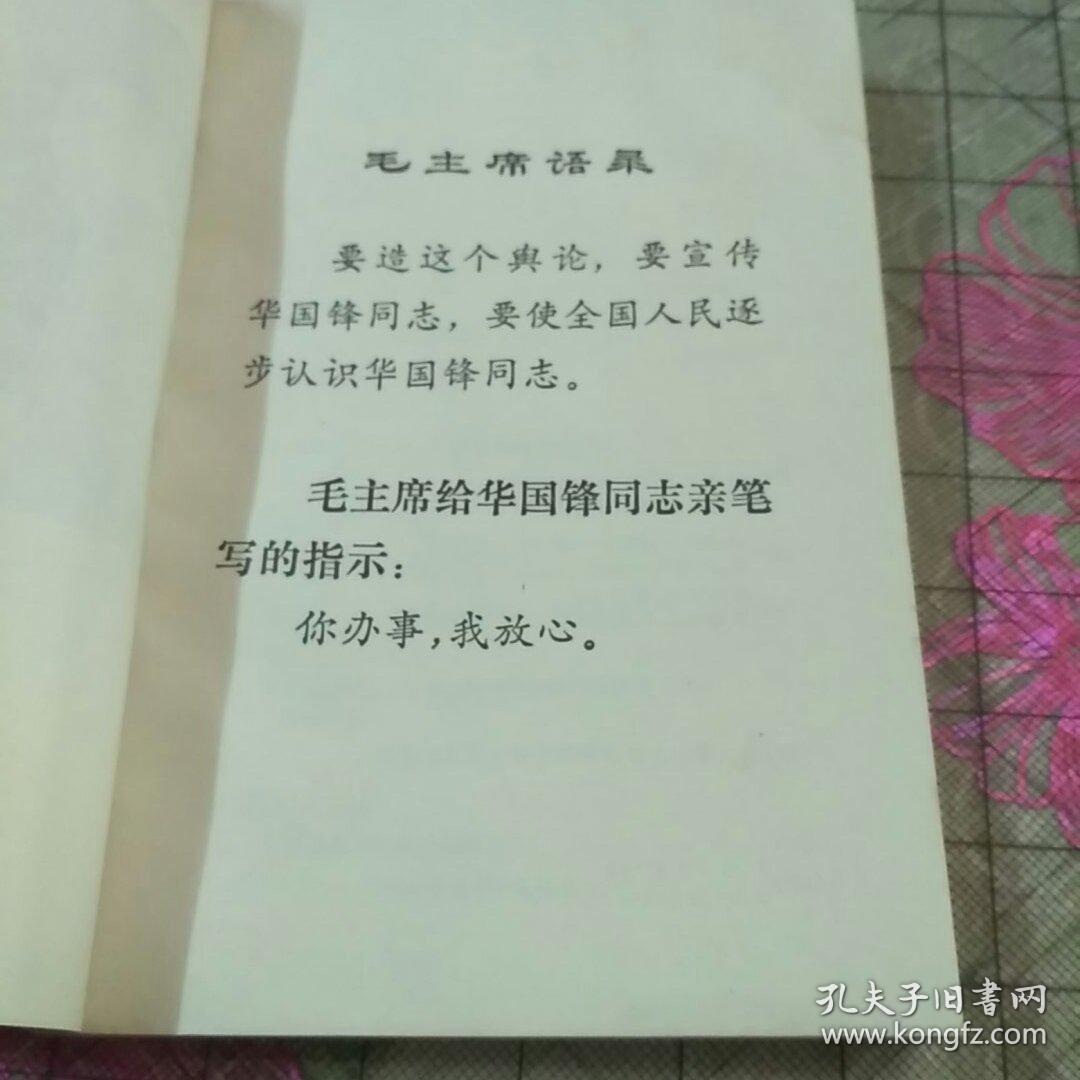 毛主席语录
要造这个舆论，要宣传
华国锋同志，要使全国人民逐
步认识华国锋同志。
毛主席给华国锋同志亲笔
写的指示：
你办事，我放心。
孔夫子旧書网
www.kongfz.com